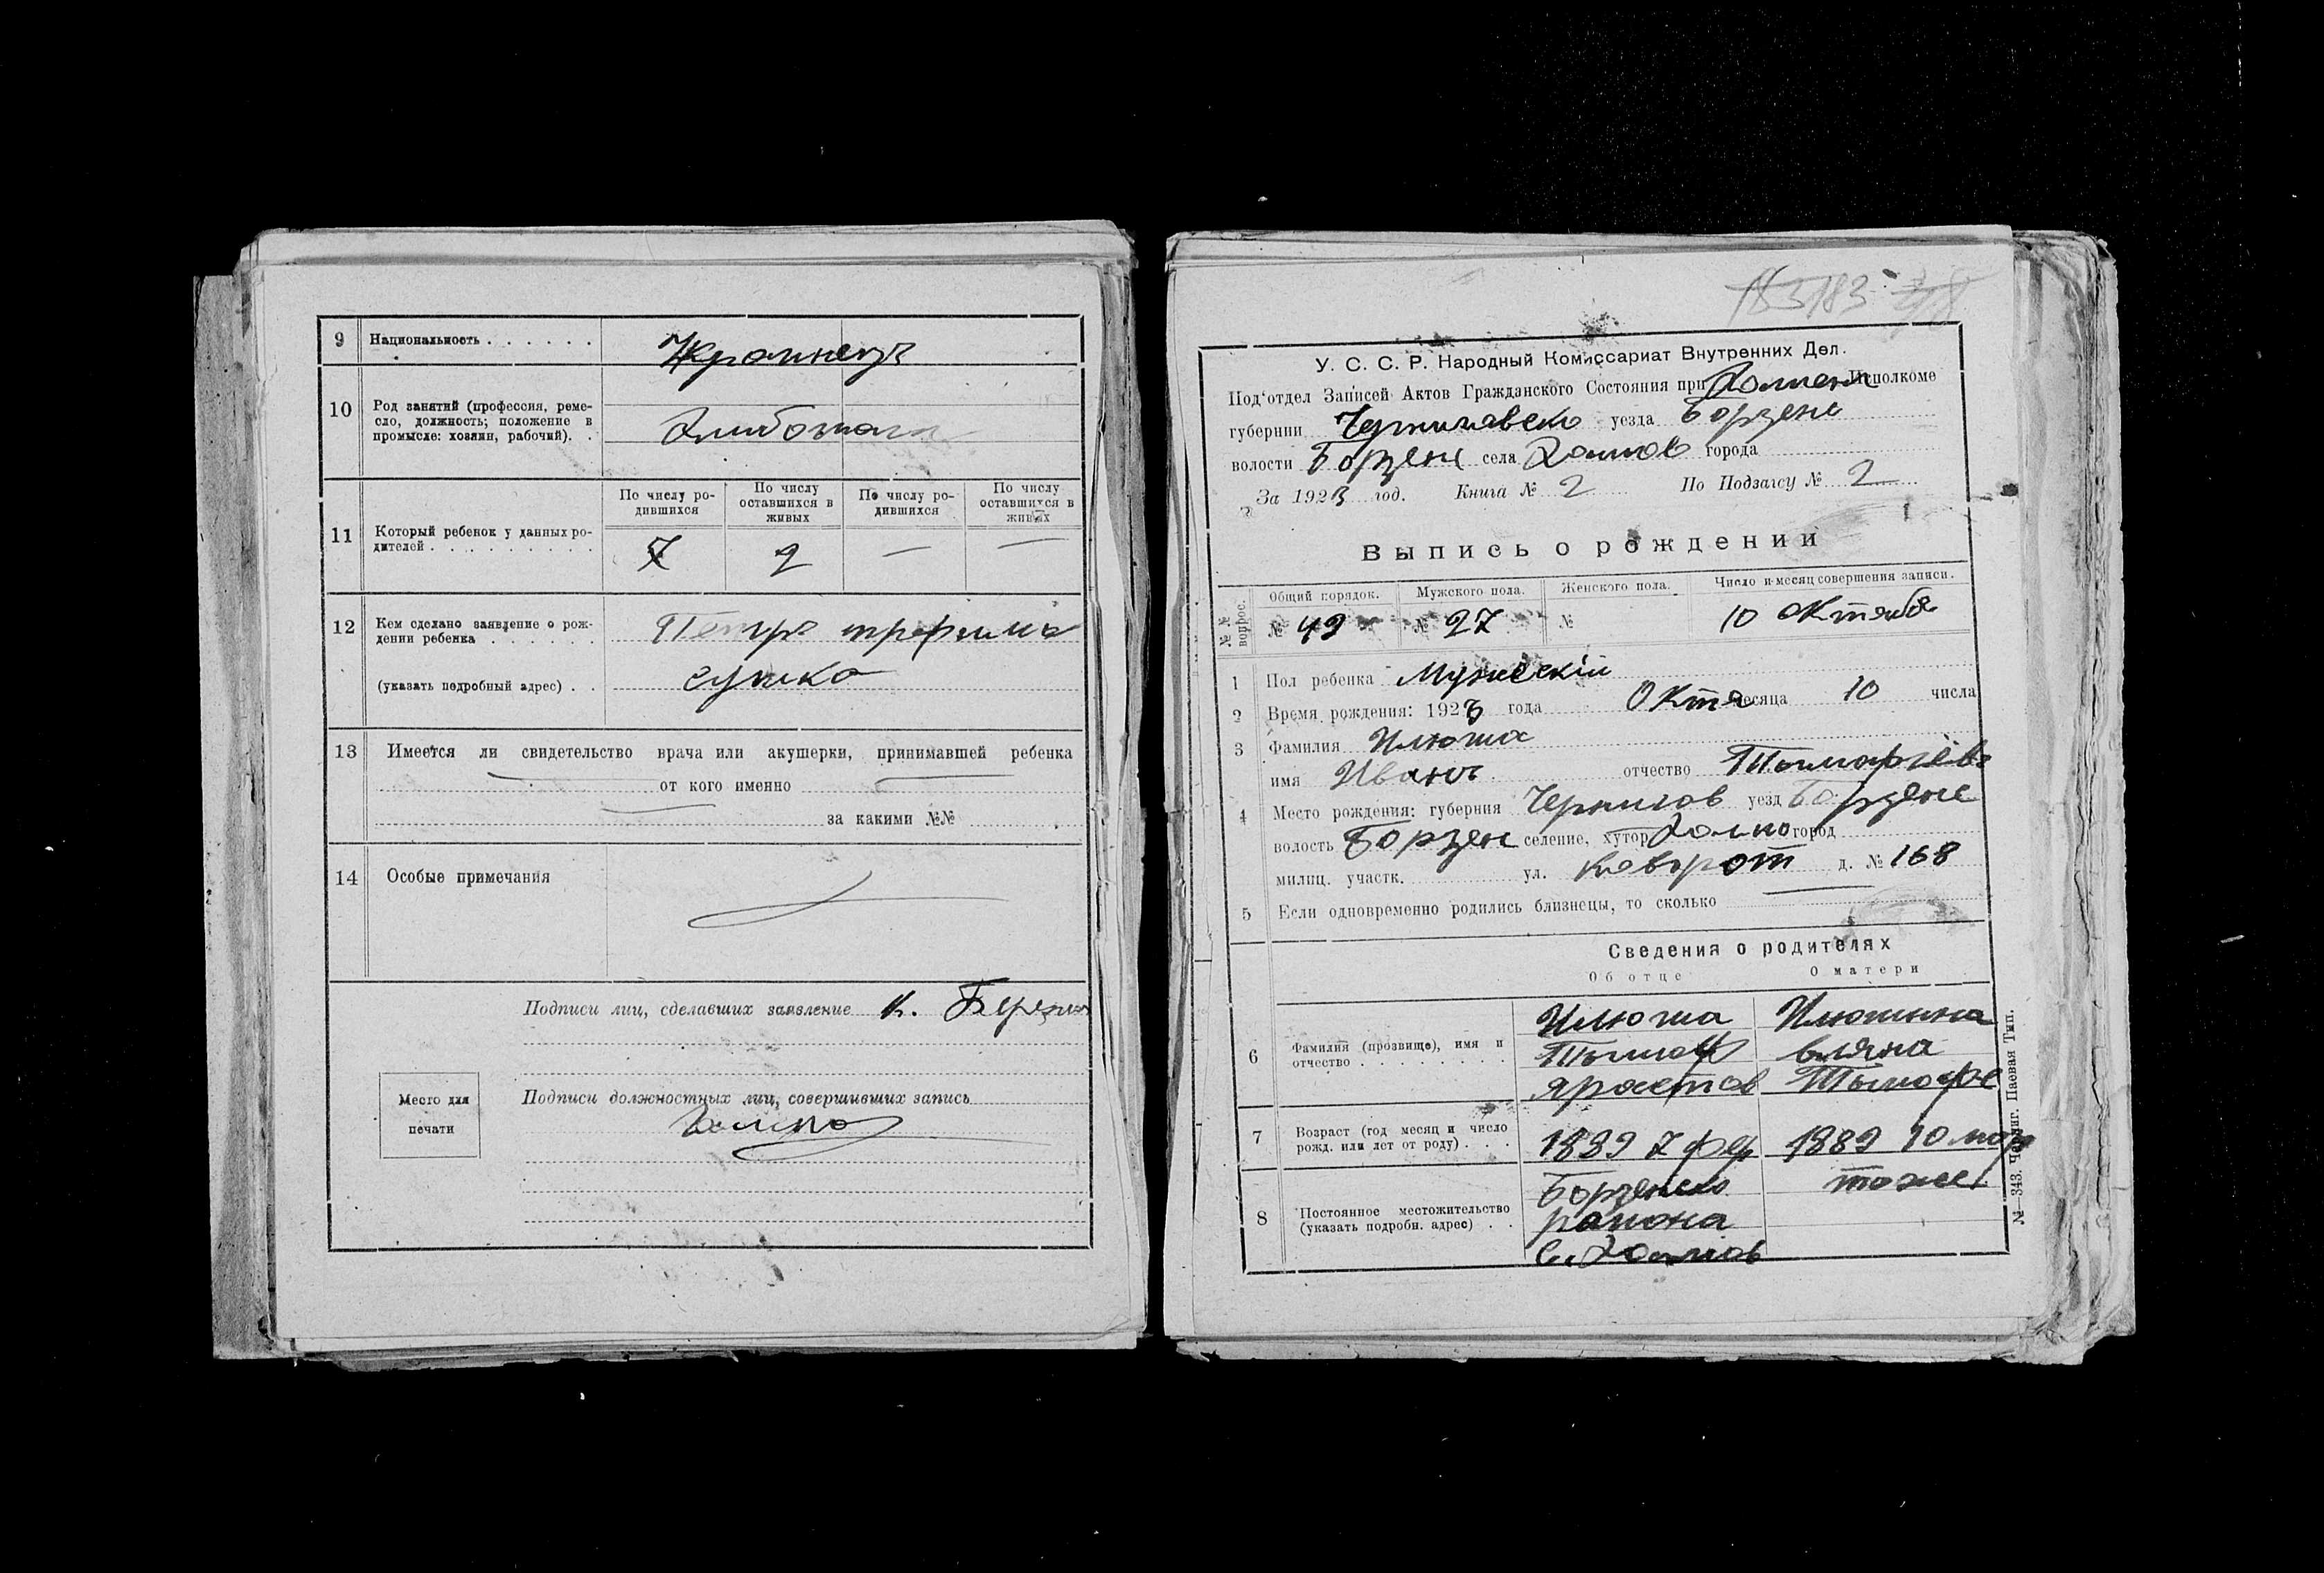 9 Национальность . . . . . .
10 Род занятий (профессия, реме-
сло, должность; положение в
промысле: хозяин, рабочий). .
11 Который ребенок у данных ро-
дителей . . . . . . . . . .
По числу ро-
дившихся
По числу
оставшихся в
живых
По числу ро-
дившихся
По числу
оставшихся в
живых
7 2 — —
12 Кем сделано заявление о рож-
дении ребенка . . . . . . Петро
(указать подробный адрес) . .
13 Имеется ли свидетельство врача или акушерки, принимавшей ребенка
от кого именно
за какими №№
14 Особые примечания
Подписи лиц, сделавших заявление К.
Место для
печати
Подписи должностных лиц, совершивших запись
183183
У. С. С. Р. Народный Комиссариат Внутренних Дел.
Под‘отдел Записей Актов Гражданского Состояния при Исполкоме
губернии уезда Борзенс
волости Борзенс села города
За 1923 год. Книга № 2 По Подзагсу № 2
Выпись о рождении
№№ вопрос. Общий порядок. Мужского пола. Женского пола. Число и месяц совершения записи.
№ 49 № 27 № 10 Октября
1 Пол ребенка Мужескій
2 Время рождения: 1923 года Октя месяца 10 числа
3 Фамилия Илюша
имя Иванъ отчество
4 Место рождения: губерния Чернигов уезд Борзенс
волость Борзен селение, хутор город
милиц. участк. ул. д. № 168
5 Если одновременно родились близнецы, то сколько —
Сведения о родителях
Об отце О матери
6 Фамилия (прозвище), имя и
отчество . . . . . . . . .
Илюша
Илюшина
7 Возраст (год месяц и число
рожд. или лет от роду) . . .
1889 10 мар
8 Постоянное местожительство
(указать подробн. адрес) . .
Борзенско
района
тоже
№—343. Черниг. Паевая Тип.